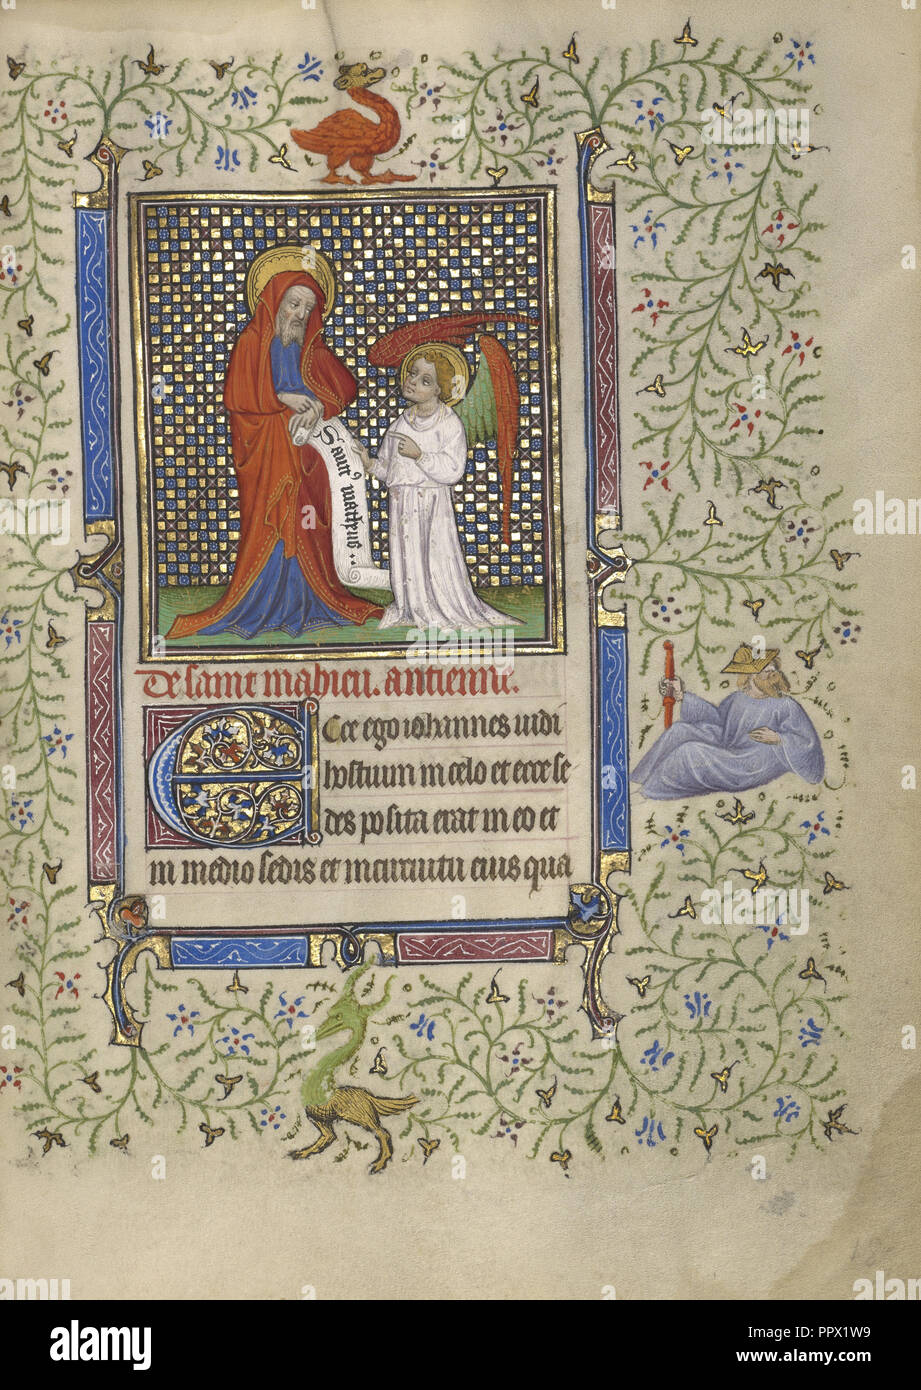 Sanct⁹ matheus..
De saint mahieu. antienne.
Ecce ego iohannes uidi
hostium in celo et ecce se
des posita erat in eo et
in medio sedis et in circuitu eius qua
alamy
Image ID: PPX1W9
www.alamy.com